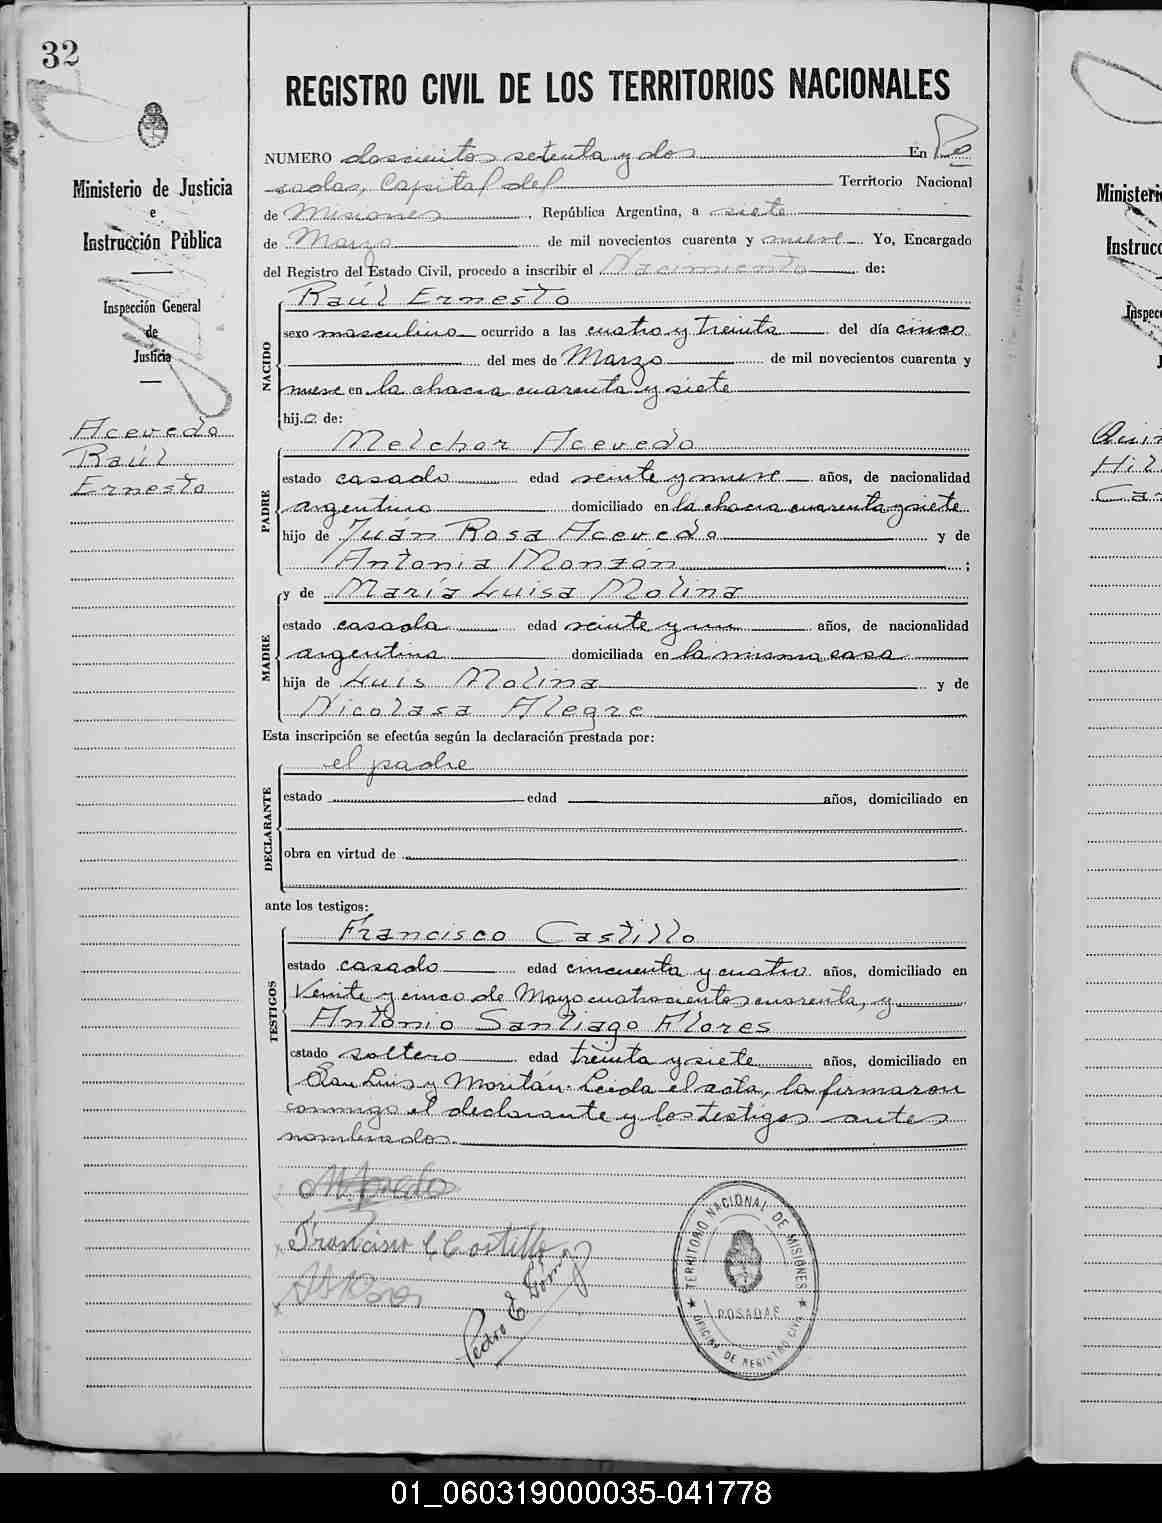 32
REGISTRO CIVIL DE LOS TERRITORIOS NACIONALES
Ministerio de Justicia
e
Instrucción Pública
Inspección General
de
Justicia
Acevedo
Raúl
Ernesto
NUMERO doscientos setenta y dos En Po
sadas, Capital del Territorio Nacional
de Misiones, República Argentina, a siete
de Marzo de mil novecientos cuarenta y nueve Yo, Encargado
del Registro del Estado Civil, procedo a inscribir el Nacimiento de:
NACIDO
Raúl Ernesto
sexo masculino ocurrido a las cuatro y treinta del día cinco
del mes de Marzo de mil novecientos cuarenta y
nueve en la chacra cuarenta y siete
hijo de:
PADRE
Melchor Acevedo
estado casado edad veinte y nueve años, de nacionalidad
argentino domiciliado en la chacra cuarenta y siete
hijo de Juán Rosa Acevedo y de
Antonia Monzón;
MADRE
y de María Luisa Molina
estado casada edad veinte y un años, de nacionalidad
argentina domiciliada en la misma casa
hija de Luis Molina y de
Nicolasa Alegre
Esta inscripción se efectúa según la declaración prestada por:
DECLARANTE
el padre
estado edad años, domiciliado en
obra en virtud de
ante los testigos:
TESTIGOS
Francisco Castillo
estado casado edad cincuenta y cuatro años, domiciliado en
Veinte y cinco de Mayo cuatrocientos cuarenta, y
Antonio Santiago Flores
estado soltero edad treinta y siete años, domiciliado en
San Luis y Moritán. Leída el acta, la firmaron
conmigo el declarante y los testigos antes
nombrados.
M. Acevedo
Francisco C Castillo
Pedro E Gómez
TERRITORIO NACIONAL DE MISIONES
POSADAS
OFICINA DE REGISTRO CIVIL
Ministerio
Instrucc
Inspec
J
Quin
Hil
Car
01_060319000035-041778